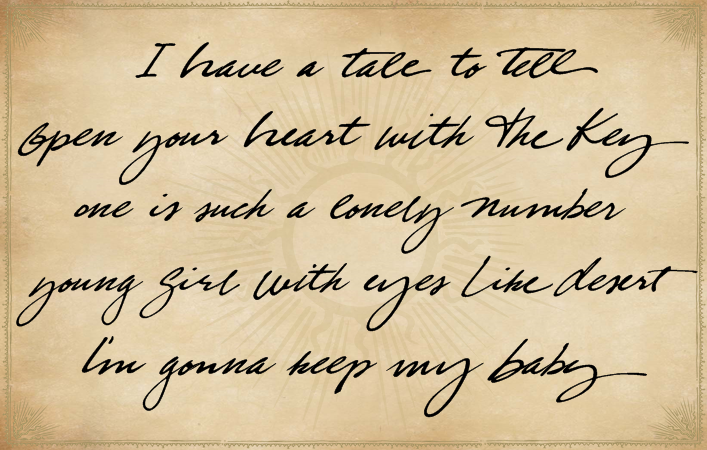 I have a tale to tell
Open your heart with the Key
one is such a lonely number
young girl with eyes like desert
I'm gonna keep my baby